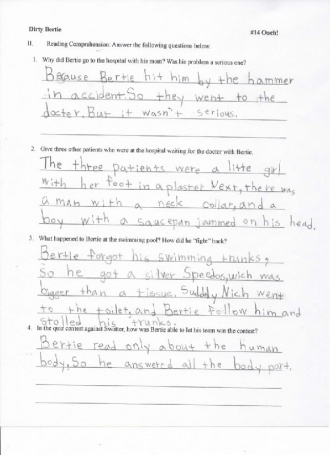 Dirty Bertie
#14 Ouch!
II. Reading Comprehension: Answer the following questions below.
1. Why did Bertie go to the hospital with his mom? Was his problem a serious one?
Because Bertie hit him by the hammer
in accident. So they went to the
doctor. But it wasn't serious.
2. Give three other patients who were at the hospital waiting for the doctor with Bertie.
The three patients were a litte girl
with her foot in a plaster. Next, there was
a man with a neck collar, and a
boy with a saucepan jammed on his head.
3. What happened to Bertie at the swimming pool? How did he "fight" back?
Bertie forgot his swimming trunks,
So he got a silver Speedos, wich was
bigger than a tissue. Suddly Nich went
to the toilet, and Bertie follow him and
stolled his trunks.
4. In the quiz contest against Swotter, how was Bertie able to let his team win the contest?
Bertie read only about the human
body, So he answered all the body part.